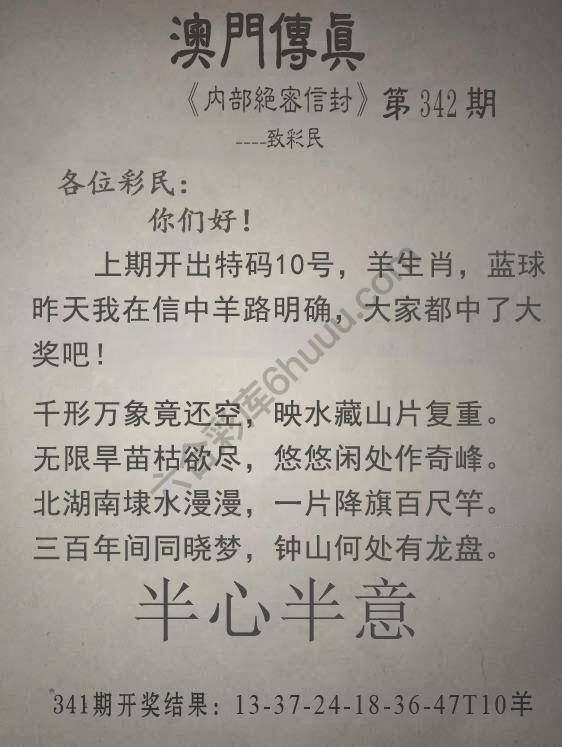 澳門傳真
《内部絕密信封》第342期
----致彩民
各位彩民：
你们好！
上期开出特码10号，羊生肖，蓝球
昨天我在信中羊路明确，大家都中了大
奖吧！
千形万象竟还空，映水藏山片复重。
无限旱苗枯欲尽，悠悠闲处作奇峰。
北湖南埭水漫漫，一片降旗百尺竿。
三百年间同晓梦，钟山何处有龙盘。
半心半意
341期开奖结果：13-37-24-18-36-47T10羊
六合彩库6huuu.com